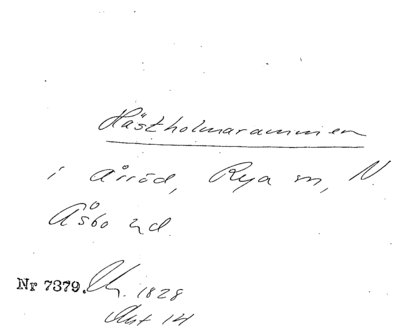 Hästholmarammen
i Århöd, Rya sn, N.
Åsbo hd.
Nr 7379. Uh. 1828
Akt 14